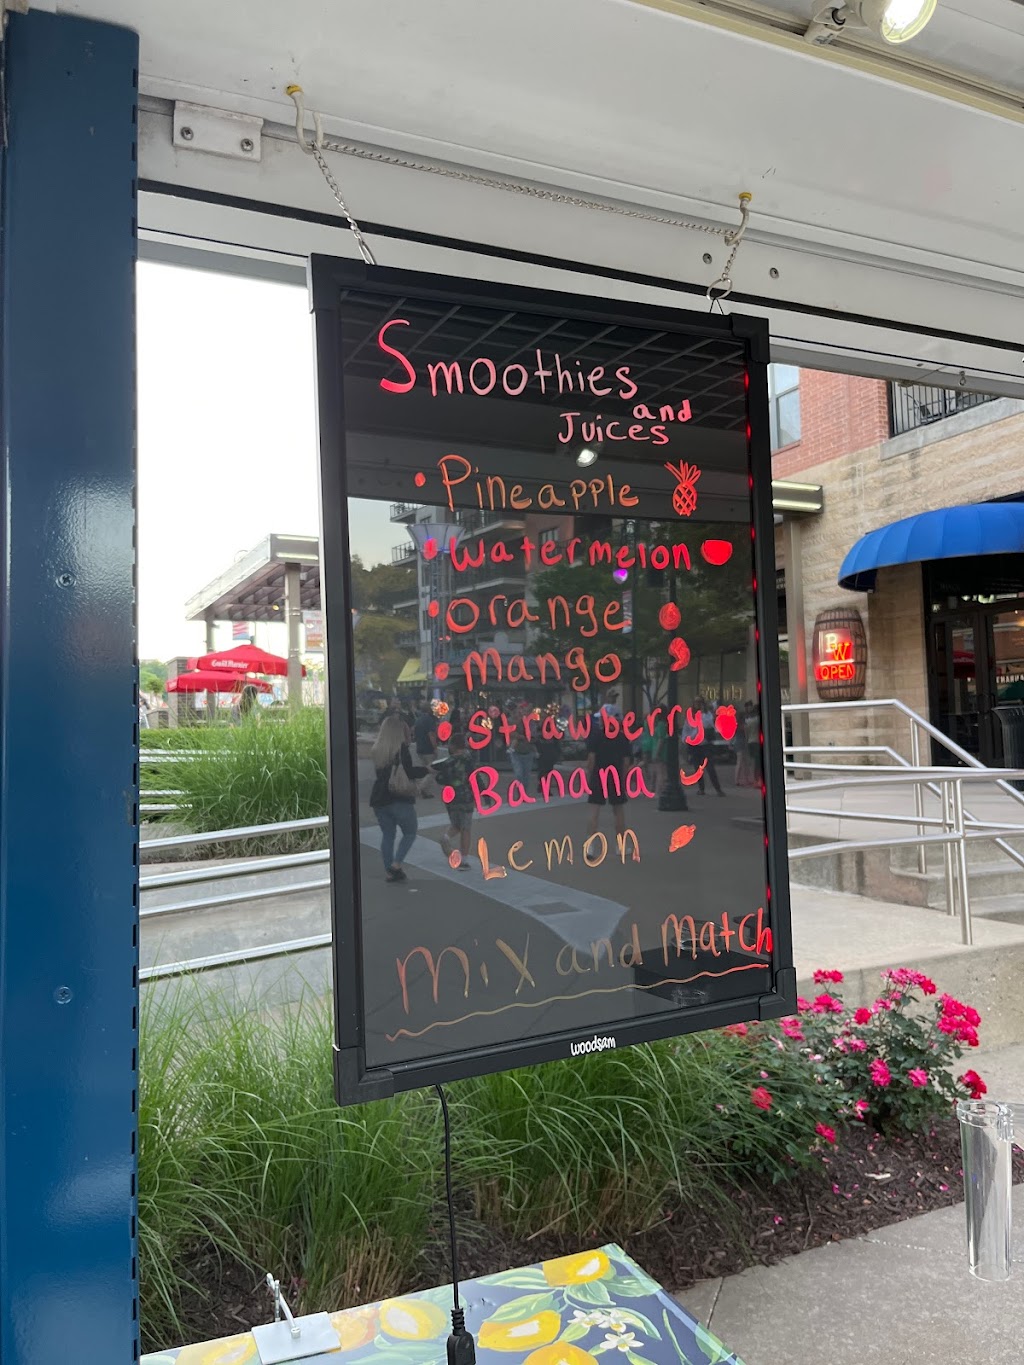 Smoothies
and
Juices
• Pineapple
• Watermelon
• Orange
• Mango
• Strawberry
• Banana
• Lemon
Mix and Match
woodsam
BW
OPEN
Grand Marnier